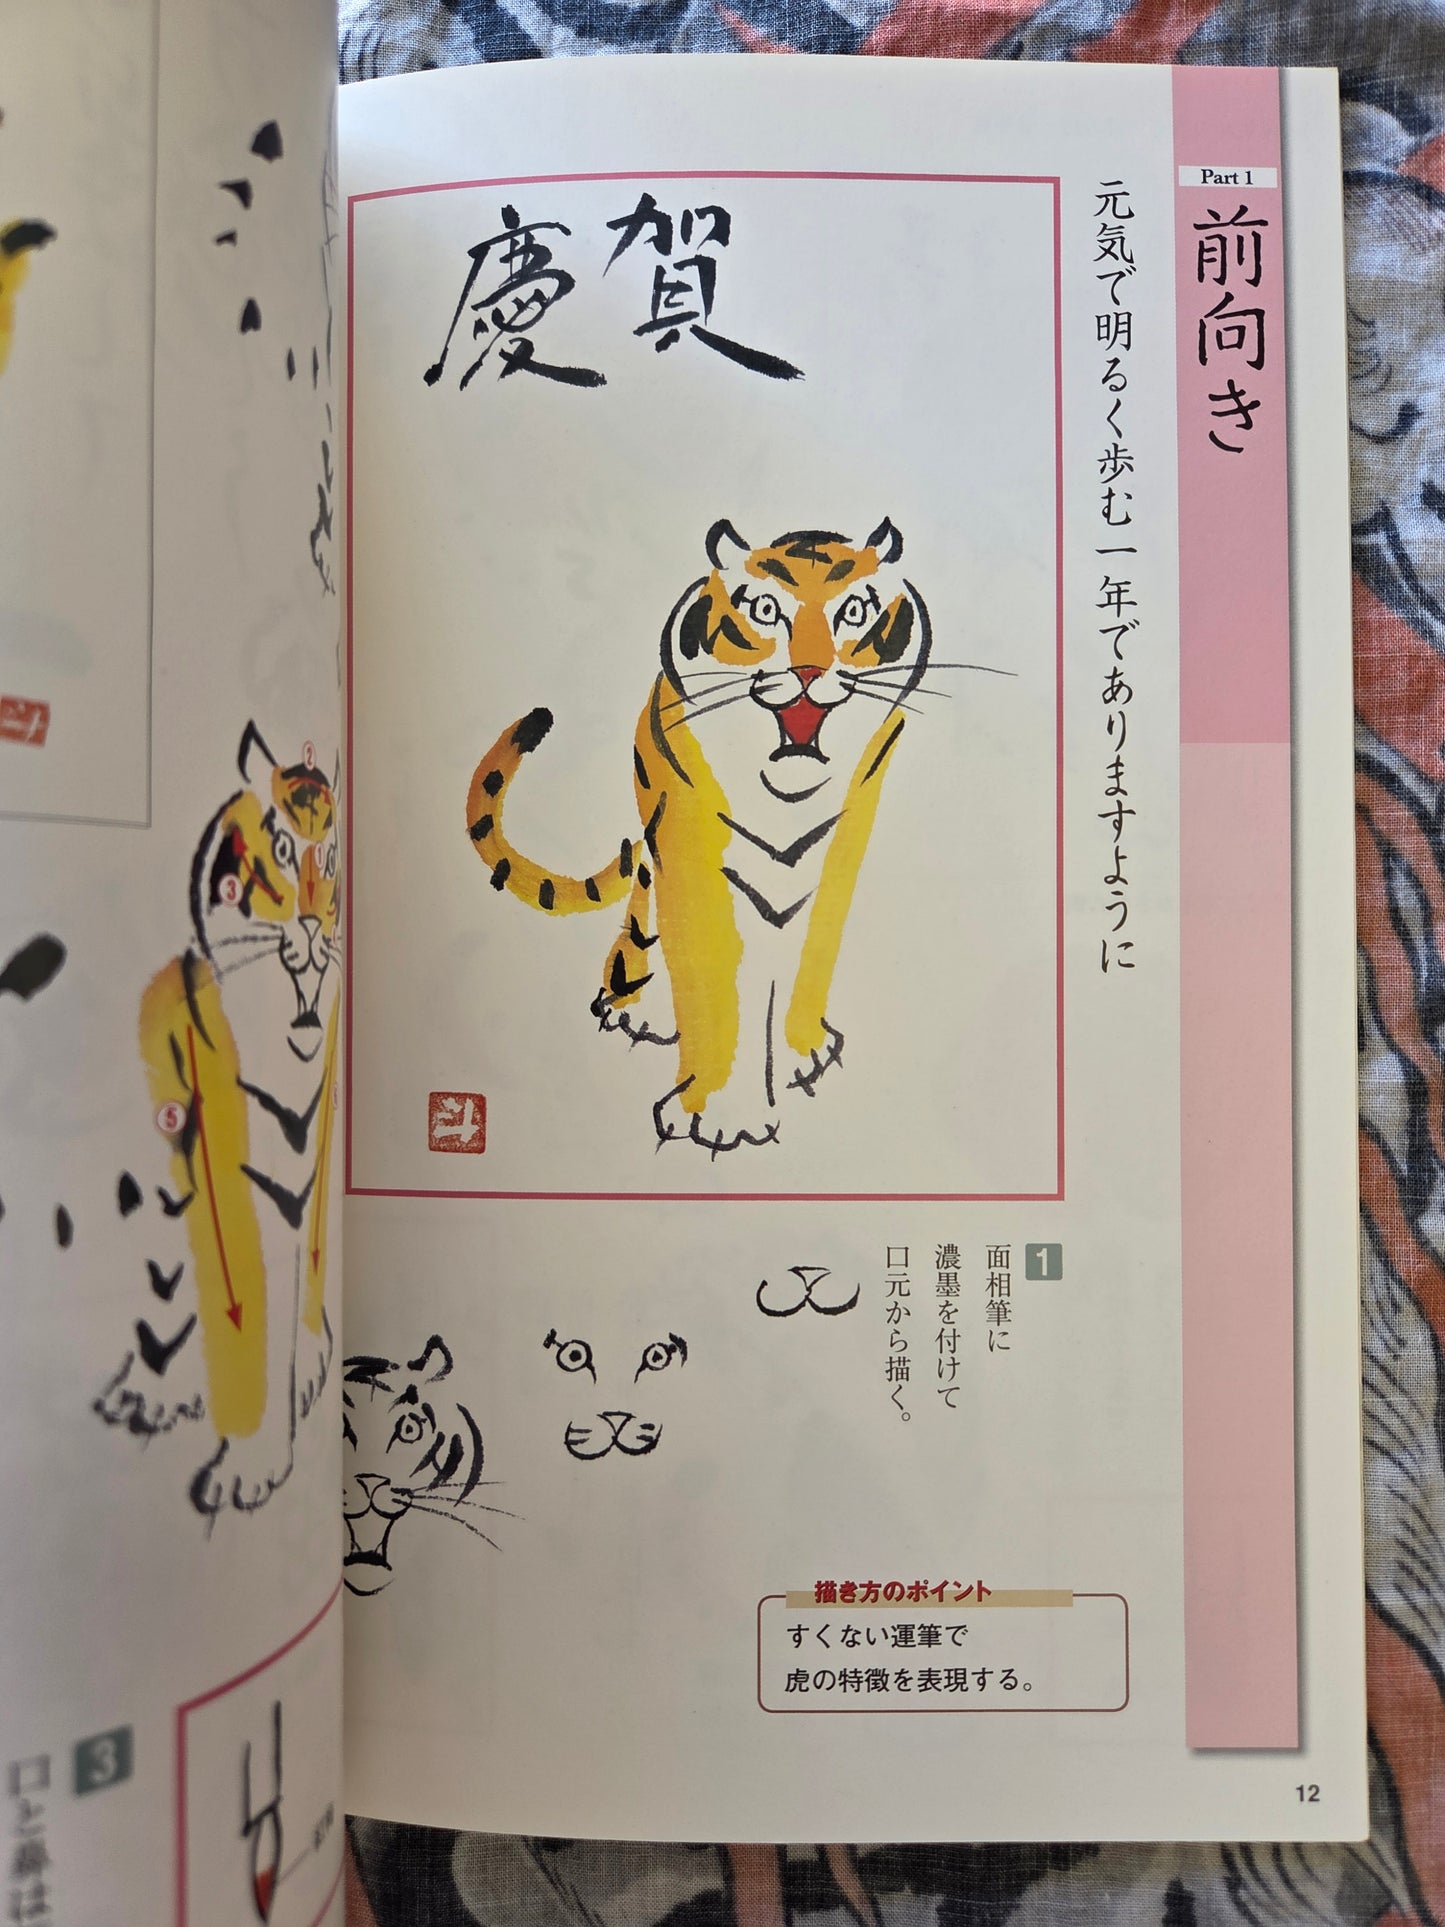 Part 1
前向き
元気で明るく歩む一年でありますように
賀
慶
1
面相筆に
濃墨を付けて
口元から描く。
描き方のポイント
すくない運筆で
虎の特徴を表現する。
12
2
1
3
5
3
口と鼻は